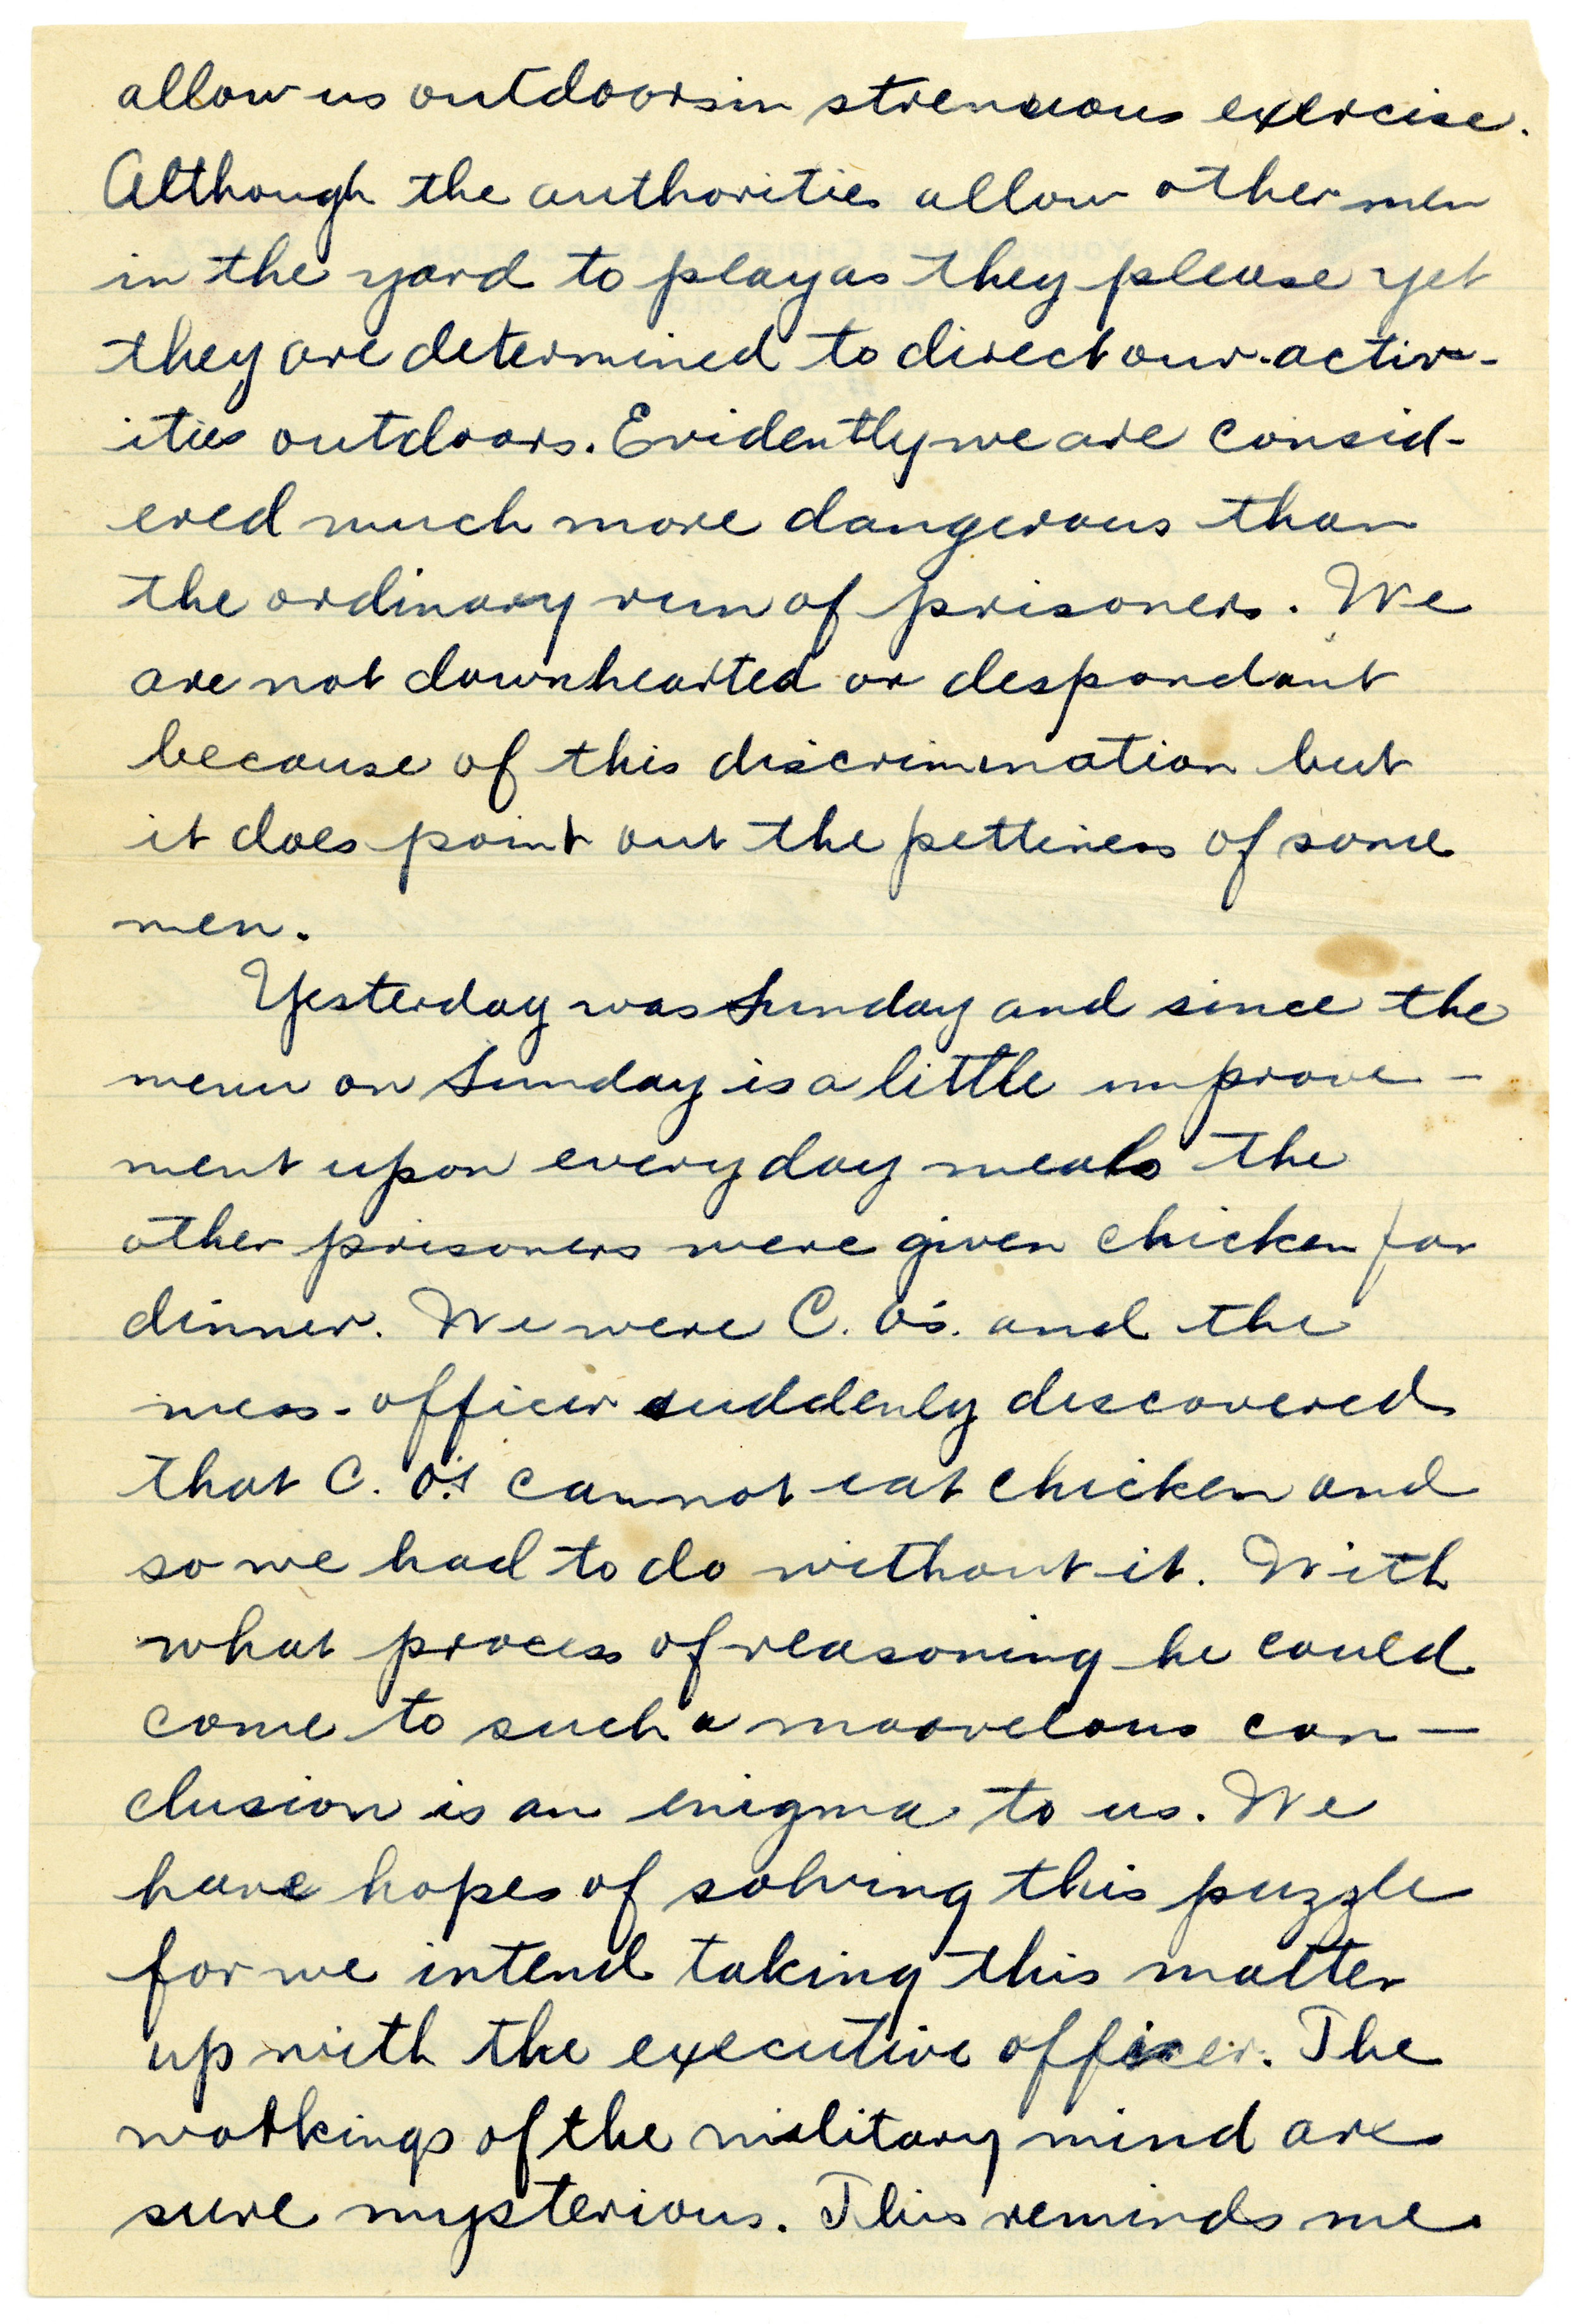 allow us outdoors in strenuous exercise.
Although the authorities allow other men
in the yard to play as they please yet
they are determined to direct our activ-
ities outdoors. Evidently we are consid-
ered much more dangerous than
the ordinary run of prisoners. We
are not downhearted or despondant
because of this discrimination but
it does point out the pettiness of some
men.
Yesterday was Sunday and since the
menu on Sunday is a little improve-
ment upon everyday meals the
other prisoners were given chicken for
dinner. We were C. O's. and the
mess-officer suddenly discovered
that C. O's cannot eat chicken and
so we had to do without it. With
what process of reasoning he could
come to such a marvelous con-
clusion is an enigma to us. We
have hopes of solving this puzzle
for we intend taking this matter
up with the executive officer. The
workings of the military mind are
sure mysterious. This reminds me